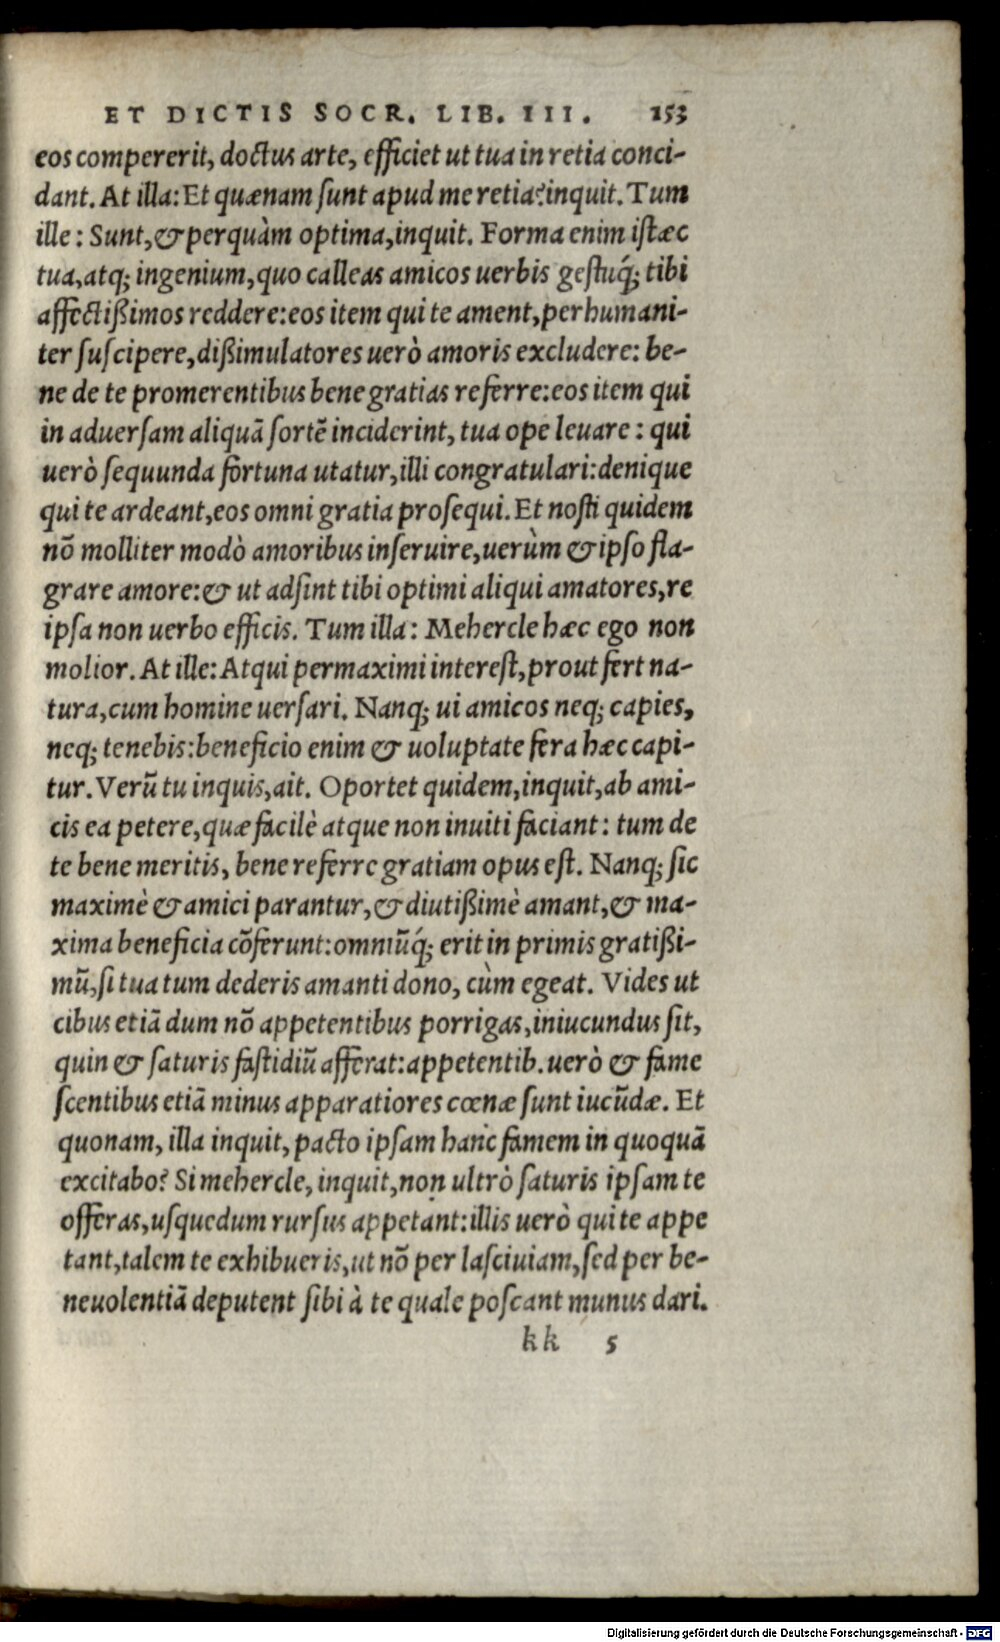 ET DICTIS SOCR. LIB. III. 153
eos compererit, doctus arte, efficiet ut tua in retia conci-
dant. At illa: Et quænam ſunt apud me retia? inquit. Tum
ille: Sunt, & perquàm optima, inquit. Forma enim iſtæc
tua, atq; ingenium, quo calleas amicos uerbis geſtuq́; tibi
affectißimos reddere: eos item qui te ament, perhumani-
ter ſuſcipere, dißimulatores uerò amoris excludere: be-
ne de te promerentibus bene gratias referre: eos item qui
in aduerſam aliquã ſortẽ inciderint, tua ope leuare: qui
uerò ſequunda fortuna utatur, illi congratulari: denique
qui te ardeant, eos omni gratia proſequi. Et noſti quidem
nõ molliter modò amoribus inſeruire, uerùm & ipſo fla-
grare amore: & ut adſint tibi optimi aliqui amatores, re
ipſa non uerbo efficis. Tum illa: Mehercle hæc ego non
molior. At ille: Atqui permaximi intereſt, prout fert na-
tura, cum homine uerſari. Nanq; ui amicos neq; capies,
neq; tenebis: beneficio enim & uoluptate fera hæc capi-
tur. Verũ tu inquis, ait. Oportet quidem, inquit, ab ami-
cis ea petere, quæ facilè atque non inuiti faciant: tum de
te bene meritis, bene referre gratiam opus eſt. Nanq; ſic
maximè & amici parantur, & diutißimè amant, & ma-
xima beneficia cõferunt: omniũq́; erit in primis gratißi-
mũ, ſi tua tum dederis amanti dono, cùm egeat. Vides ut
cibus etiã dum nõ appetentibus porrigas, iniucundus ſit,
quin & ſaturis faſtidiũ afferat: appetentib. uerò & fame
ſcentibus etiã minus apparatiores cœnæ ſunt iucũdæ. Et
quonam, illa inquit, pacto ipſam hanc famem in quoquã
excitabo? Si mehercle, inquit, non ultrò ſaturis ipſam te
offeras, uſquedum rurſus appetant: illis uerò qui te appe
tant, talem te exhibueris, ut nõ per laſciuiam, ſed per be-
neuolentiã deputent ſibi à te quale poſcant munus dari.
kk 5
Digitalisierung gefördert durch die Deutsche Forschungsgemeinschaft - DFG